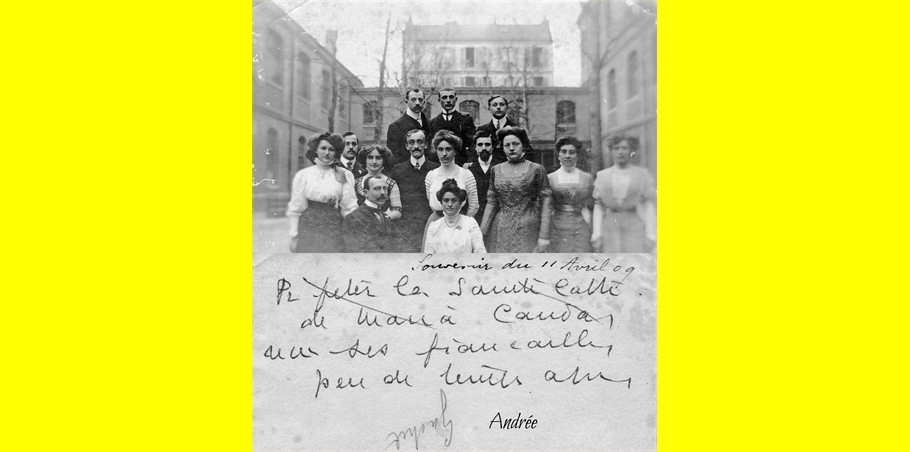 Souvenir du 11 Avril 09
Pr fêter la Sainte Cathe
de Maria Canda
ses fiancailles
peu de temps
Andrée